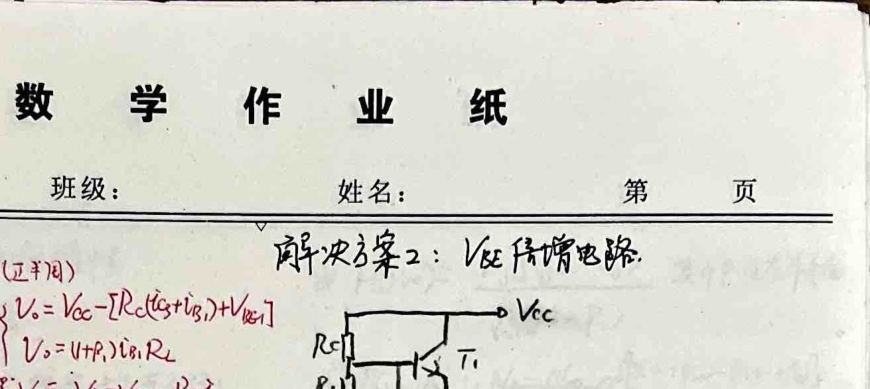 数学作业纸
班级: 姓名: 第 页
解决方案2: VBE倍增电路.
(正半周)
Vo=Vcc-[Rc(ic3+iB1)+VBE1]
Vo=(1+β1)iB1RL
Vcc
Rc
T1